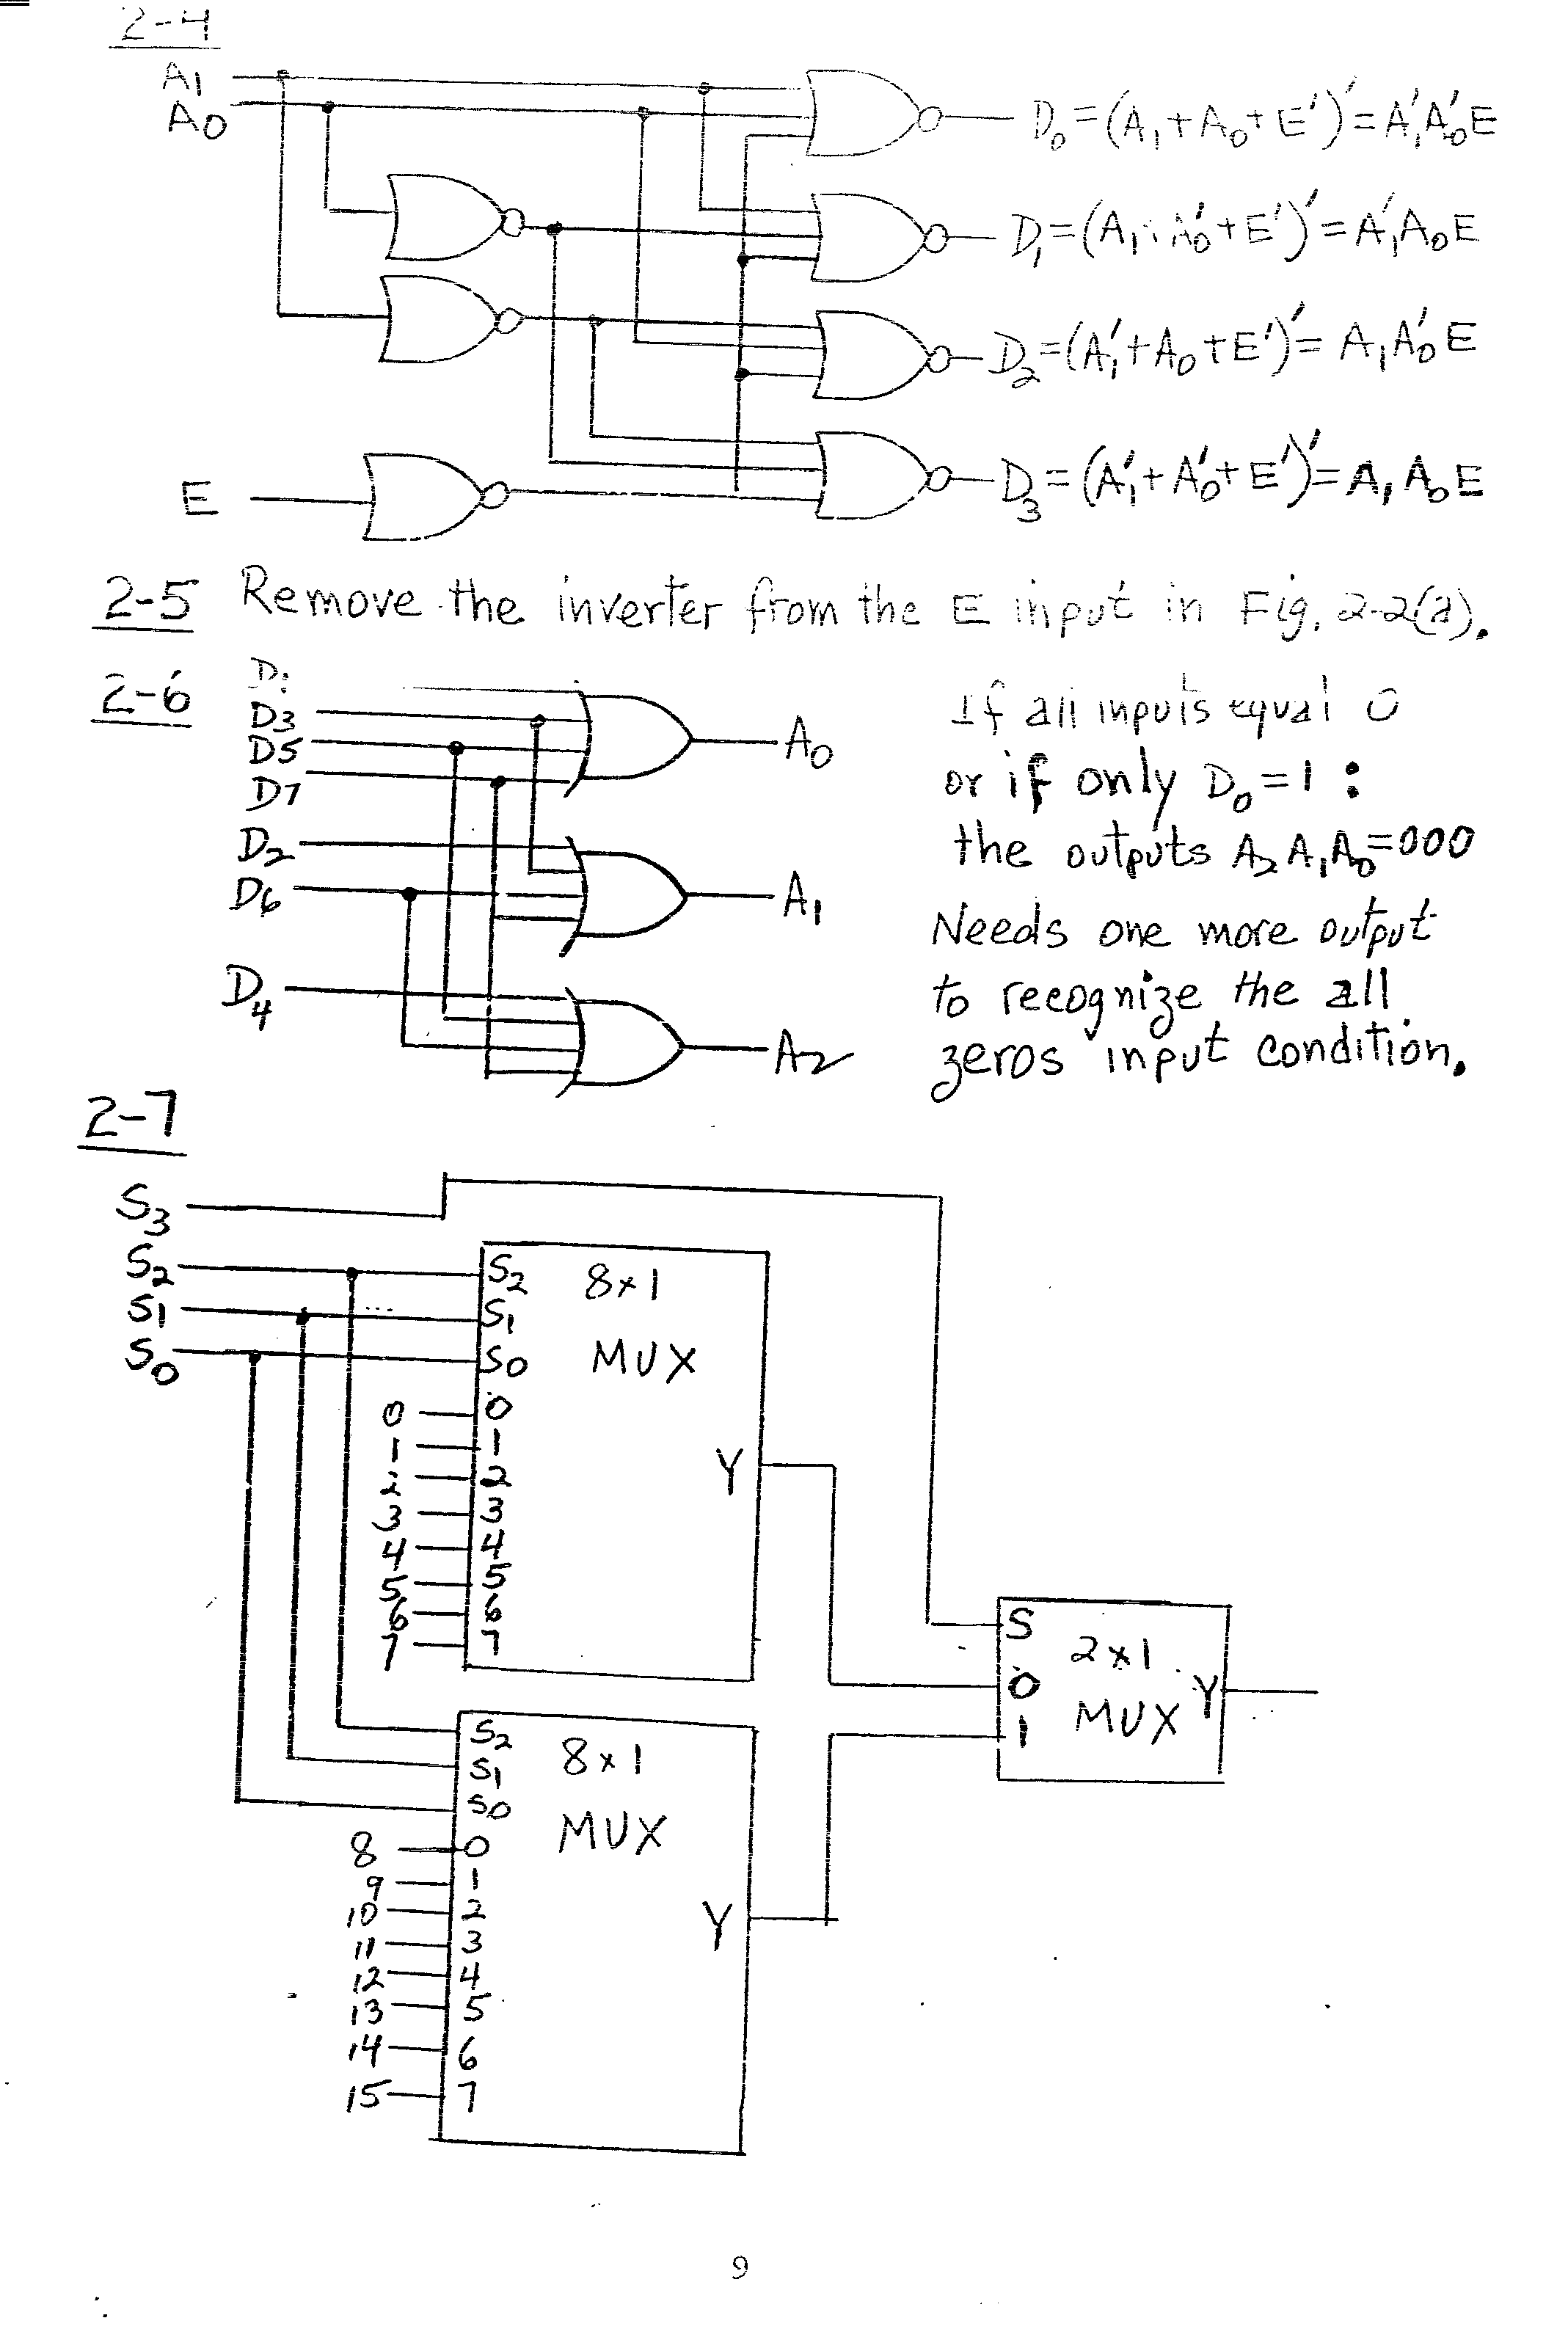 2-4
A₁
A₀
D₀ = (A₁ + A₀ + E')' = A₁'A₀'E
D₁ = (A₁ + A₀' + E')' = A₁'A₀E
D₂ = (A₁' + A₀ + E')' = A₁A₀'E
E
D₃ = (A₁' + A₀' + E')' = A₁A₀E
2-5 Remove the inverter from the E input in Fig. 2-2(a).
2-6
D₁
D3
D5
D7
A₀
D₂
D6
A₁
D₄
A₂
If all inputs equal 0
or if only D₀ = 1 :
the outputs A₂A₁A₀ = 000
Needs one more output
to recognize the all
zeros input condition.
2-7
S₃
S₂
S₁
S₀
S₂ 8x1
S₁
S₀ MUX
0 0
1 1
2 2
3 3
4 4
5 5
6 6
7 7
Y
S
2x1
0
MUX Y
1
S₂ 8x1
S₁
S₀ MUX
8 0
9 1
10 2
11 3
12 4
13 5
14 6
15 7
Y
9